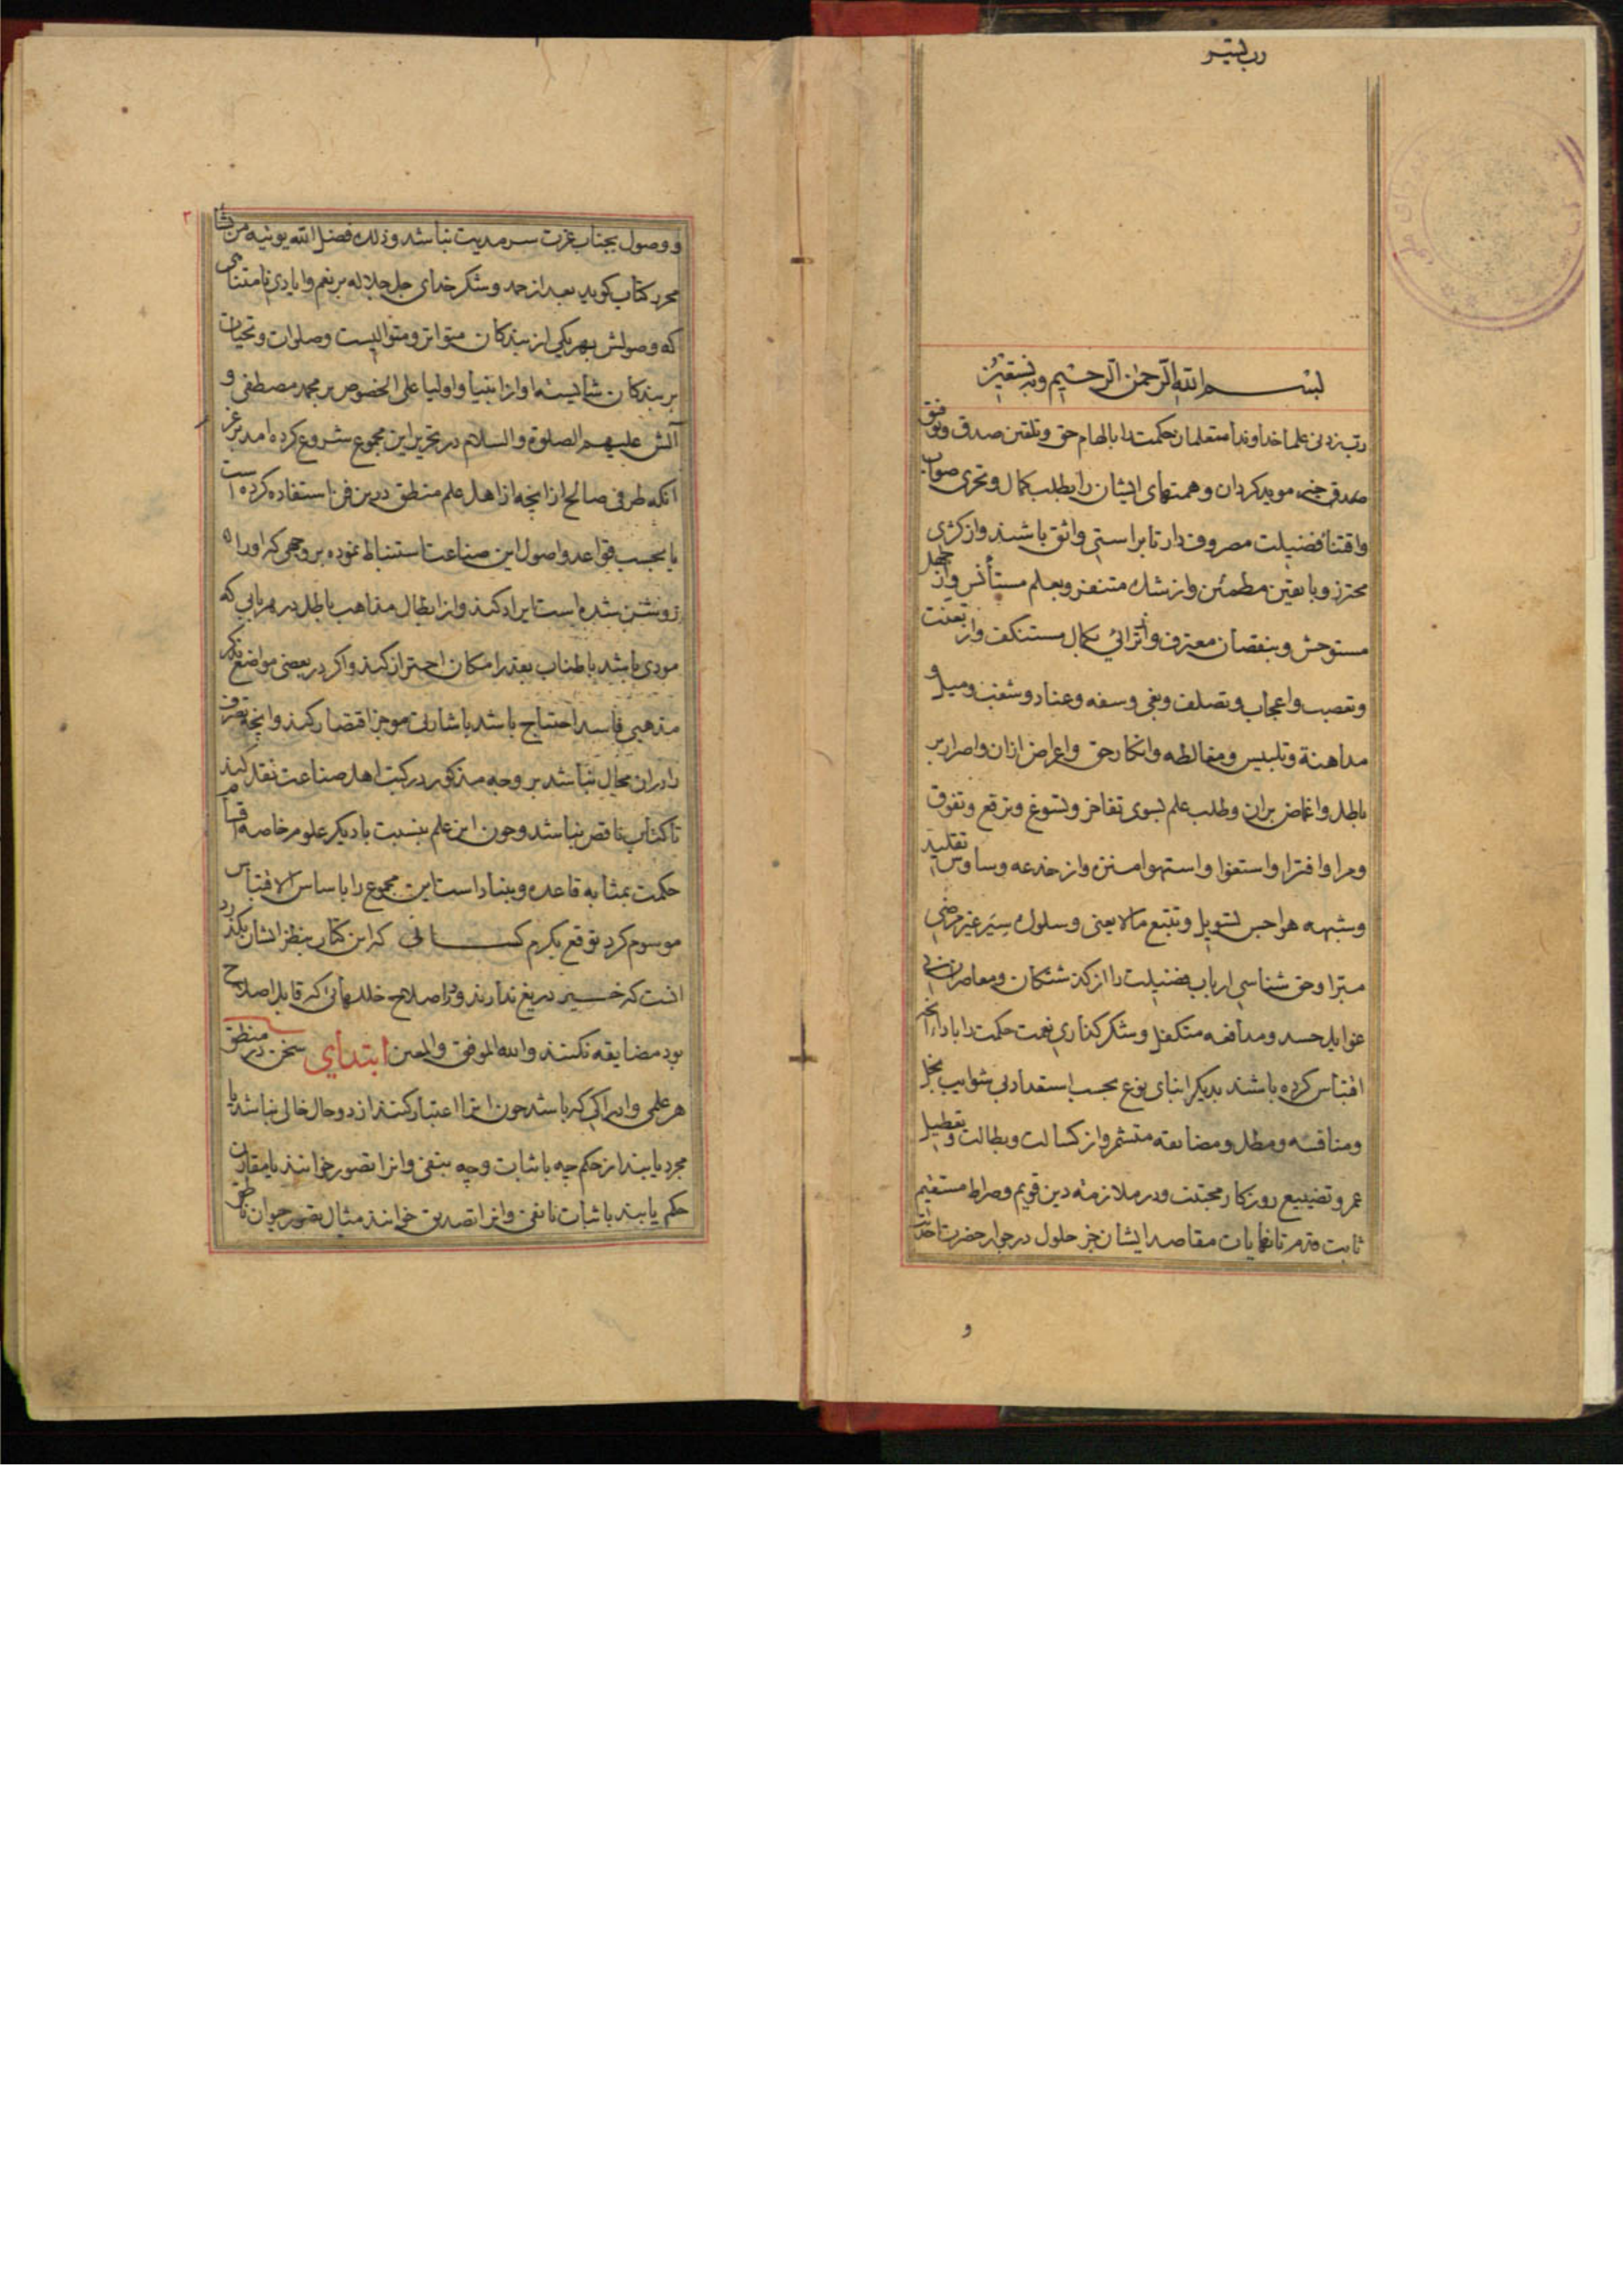 رب یسر
بسم الله الرحمن الرحیم وبه نستعین
رب زدنی علما خداوندا متعلمان حکمت را بالهام حق و تلقین صدق و توفیق
صدق خیر موید کردان و همتهای ایشان را بطلب کمال و تحری صواب
واقتنا فضیلت مصروف دار تا براستی واثق باشند و از کژی
محترز و با یقین مطمئن و از شک متنفر و بعلم مستأنس و از جهل
مستوحش و بنقصان معترف و از رائی بکمال مستنکف و از تعنت
و تعصب و اعجاب و تصلف و بغی و سفه و عناد و شغب و میل و
مداهنة و تلبیس و مغالطه و انکار حق و اعراض ازان و اصرار بر
باطل و اغماض بران و طلب علم بسوی تفاخر و تسوغ و ترفع و تفوق
و مرا و افترا و استغوا و استهوا منزه و از خدعه وساوس تقلید
و شبهه هواجس تسویل و تتبع مالایعنی و سلوک سیر غیر مرضی
مبرا و حق شناسی ارباب فضیلت را از کذشتکان و معاصران بی
غوایل حسد و مدافعه متکفل و شکر کذاری نعمت حکمت را باداء انچه
اقتباس کرده باشند بدیکر ابنای نوع بحسب استعداد بی شوایب بخل
و منافسه و مطل و مضایقه متشمر و از کسالت و بطالت و تعطیل
عمر و تضییع روزکار مجتنب و در ملازمة دین قویم و صراط مستقیم
ثابت قدم تا نهایات مقاصد ایشان جز حلول در جوار حضرت احدیت
و
۲
و وصول بجناب عزت سرمدیت نباشد و ذلک فضل الله یوتیه من یشا
محرر کتاب کوید بعد از حمد و شکر خدای جل جلاله بر نعم و ایادی نامتناهی
که وصولش بهر یکی از بندکان متواتر و متوالیست و صلوات و تحیات
بر بندکان شایسته او از انبیا و اولیا علی الخصوص بر محمد مصطفی و
آلش علیهم الصلوة والسلام در تحریر این مجموع شروع کرده امد بر عزم
انکه طرفی صالح از انچه از اهل علم منطق درین فن استفاده کرده است
یا بحسب قواعد و اصول این صناعت استنباط نموده بر وجهی که او را
روشن شده است ایراد کند و از ابطال مذاهب باطل در هر بابی که
مودی باشد باطناب بقدر امکان احتراز کند و اکر در بعضی مواضع بذکر
مذهبی فاسد احتیاج باشد باشارتی موجز اقتصار کند و انچه تصرف
را دران مجال نباشد بر وجه مذکور در کتب اهل صناعت نقل کند
تا کتاب ناقص نباشد و چون این علم بنسبت با دیکر علوم خاصه اقسام
حکمت بمثابه قاعده و بنیاد است این مجموع را باساس الاقتباس
موسوم کرد توقع بکرم کسانی که این کتاب بنظر ایشان بکذرد
انست که خیر دریغ ندارند و در اصلاح خللهائی که قابل اصلاح
بود مضایقه نکنند والله الموفق والمعین ابتدای سخن در منطق
هر علمی و ادراکی که باشد چون انرا اعتبار کنند از دو حال خالی نباشد یا
مجرد یابند از حکم چه باثبات و چه بنفی و انرا تصور خوانند یا مقارن
حکم یابند باثبات یا نفی و انرا تصدیق خوانند مثال تصور حیوان ناطق